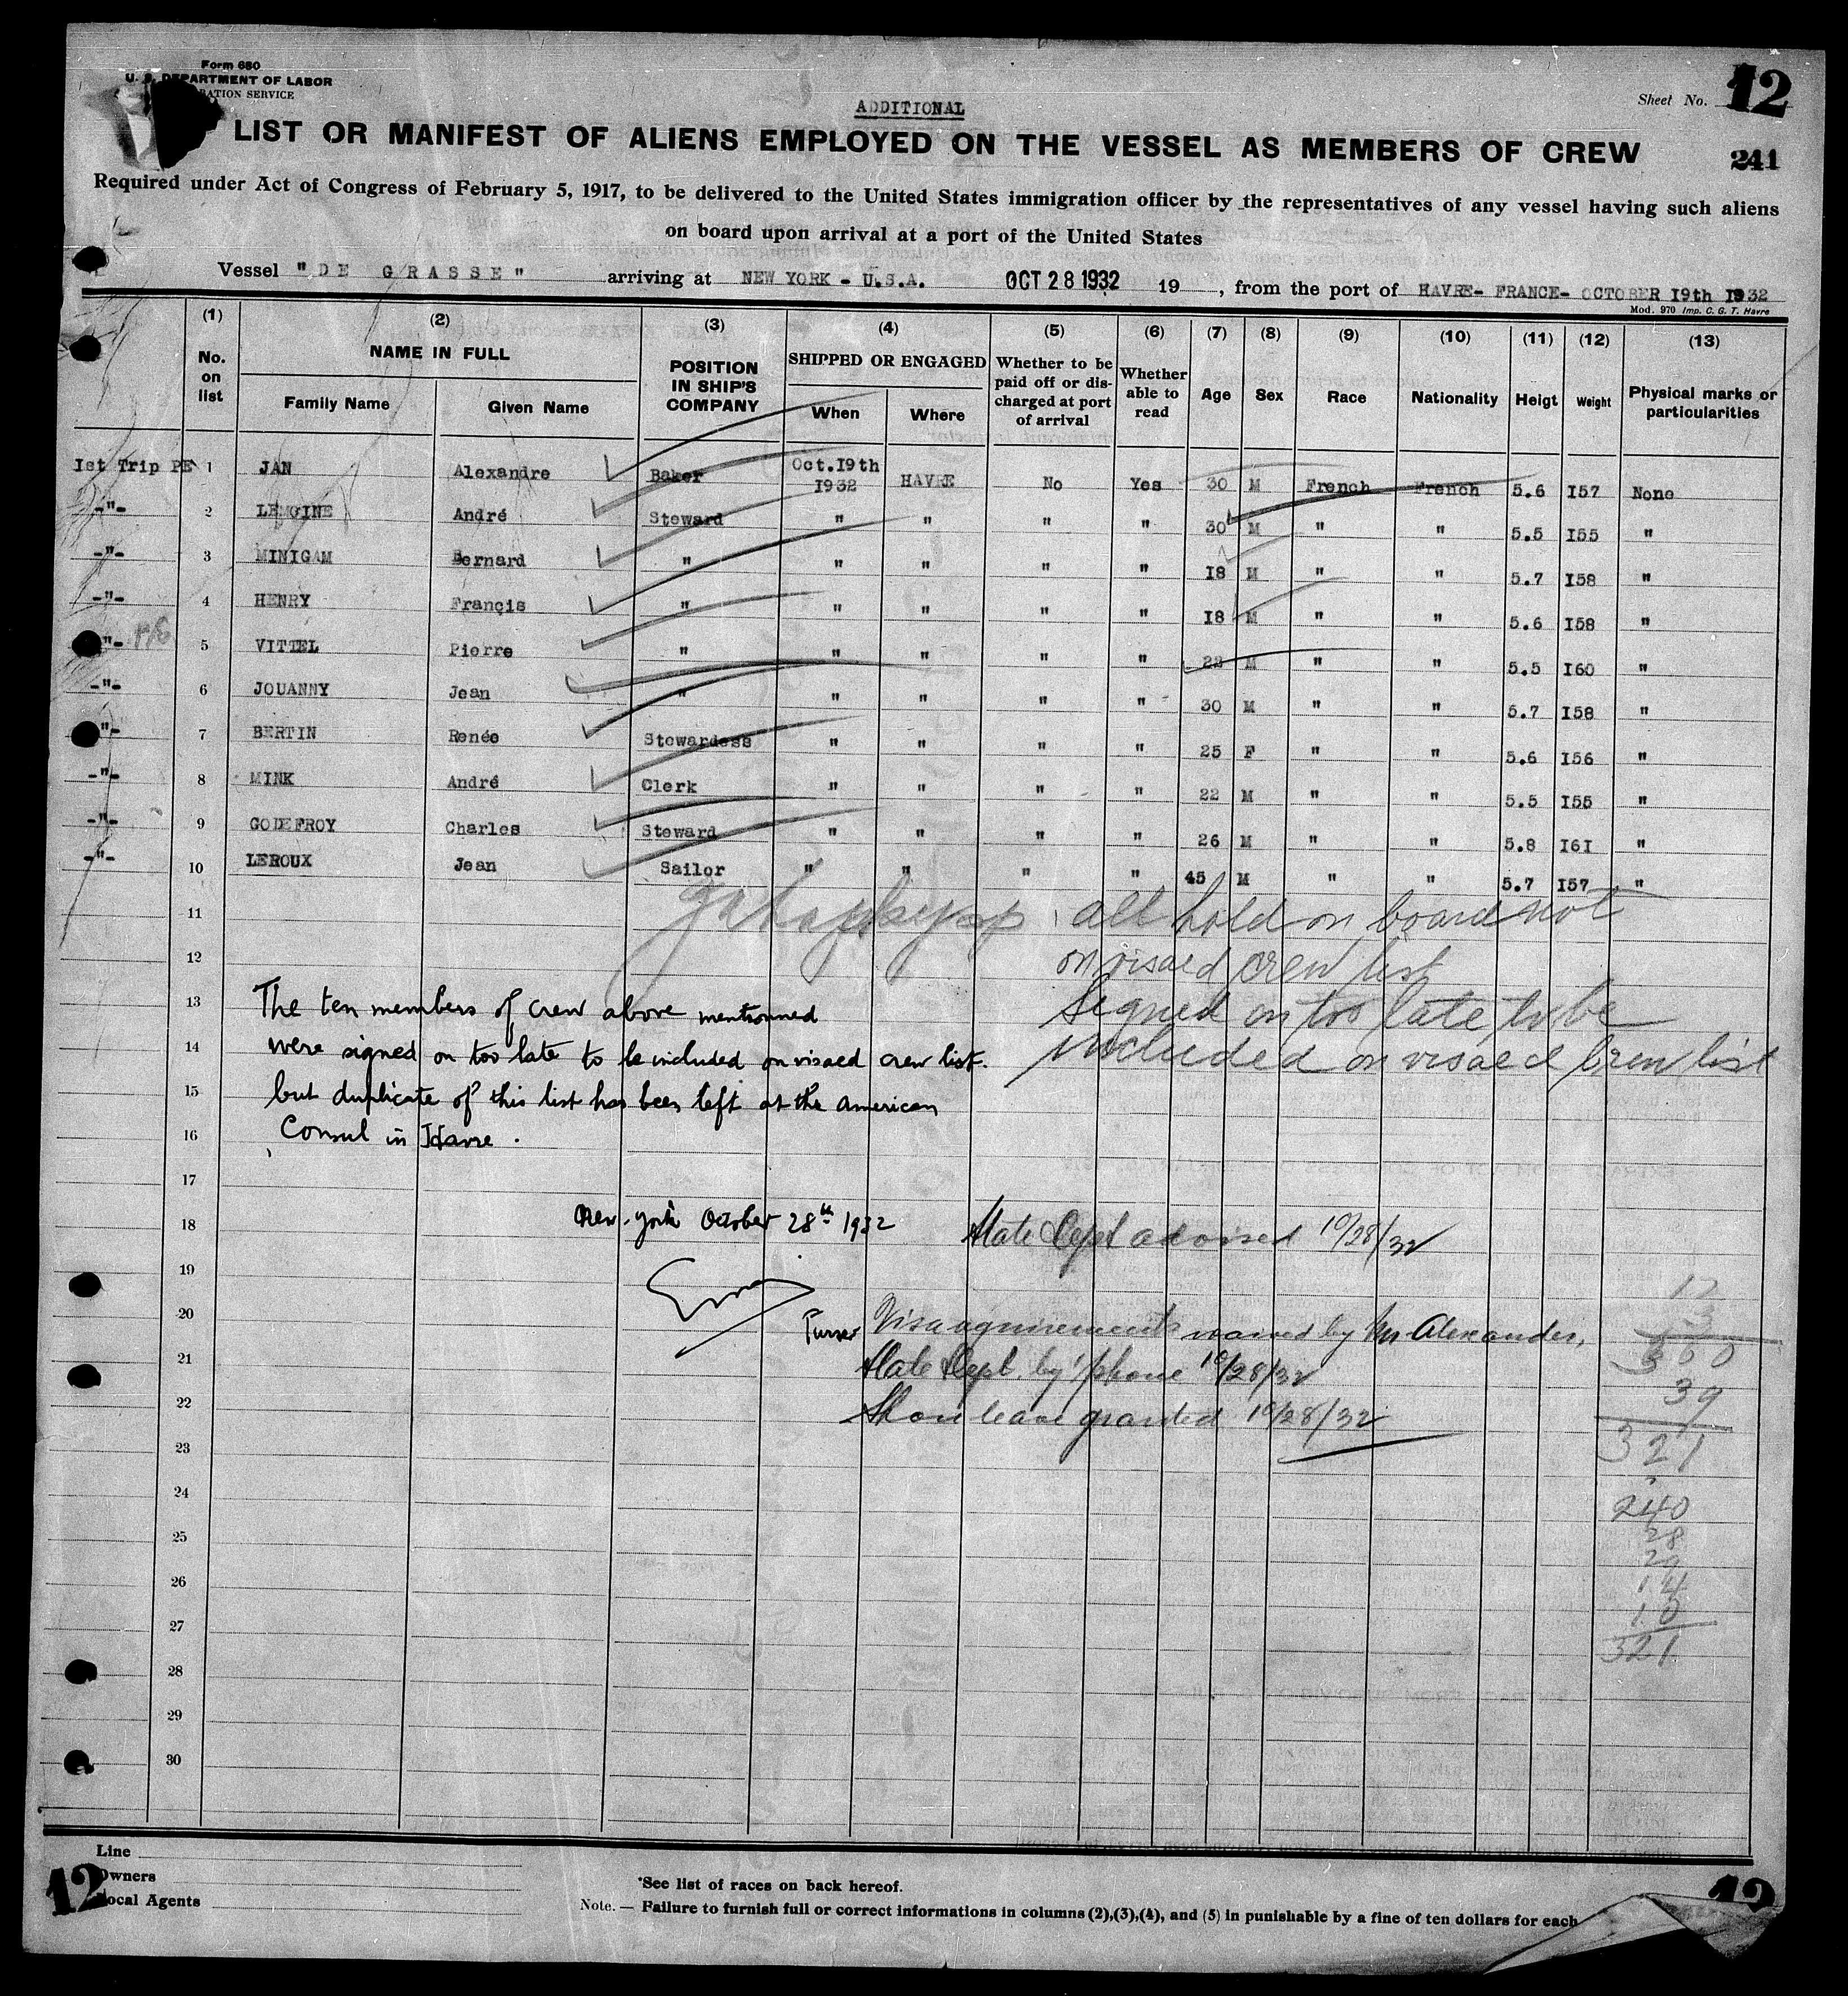 Form 680
U. S. DEPARTMENT OF LABOR
RATION SERVICE
Sheet No. 12
ADDITIONAL
LIST OR MANIFEST OF ALIENS EMPLOYED ON THE VESSEL AS MEMBERS OF CREW
241
Required under Act of Congress of February 5, 1917, to be delivered to the United States immigration officer by the representatives of any vessel having such aliens
on board upon arrival at a port of the United States
Vessel "DE GRASSE" arriving at NEW YORK - U.S.A. OCT 28 1932 19 , from the port of HAVRE- FRANCE- OCTOBER I9th I932
Mod. 970 Imp. C. G. T. Havre
(1) (2) (3) (4) (5) (6) (7) (8) (9) (10) (11) (12) (13)
No. on list NAME IN FULL Family Name Given Name POSITION IN SHIP'S COMPANY SHIPPED OR ENGAGED When Where Whether to be paid off or discharged at port of arrival Whether able to read Age Sex Race Nationality Heigt Weight Physical marks or particularities
Ist Trip PE 1 JAN Alexandre Baker Oct.I9th I932 HAVRE No Yes 30 M French French 5.6 I57 None
-"- 2 LEMOINE André Steward " " " " 30 M " " 5.5 I55 "
-"- 3 MINIGAM Bernard " " " " " I8 M " " 5.7 I58 "
-"- 4 HENRY Françis " " " " " I8 M " " 5.6 I58 "
"- 5 VITTEL Pierre " " " " " 22 M " " 5.5 I60 "
-"- 6 JOUANNY Jean " " " " " 30 M " " 5.7 I58 "
"- 7 BERTIN Renée Stewardess " " " " 25 F " " 5.6 I56 "
-"- 8 MINK André Clerk " " " " 22 M " " 5.5 I55 "
-"- 9 GODEFROY Charles Steward " " " " 26 M " " 5.8 I6I "
-"- 10 LEROUX Jean Sailor " " " " 45 M " " 5.7 I57 "
11 all hold on board not
12 on visaed crew list
13 The ten members of crew above mentionned Signed on too late to be
14 were signed on too late to be included on visaed crew list. included on visaed Crew list
15 but duplicate of this list has been left at the american
16 Consul in Havre.
17
18 New-york October 28th 1932 State Dept advised 10/28/32
19
20 Purser Visa requirements waived by Mr Alexander,
21 State Dept. by 'phone 10/28/32
22 Shore leave granted 10/28/32
23
24
25
26
27
28
29
30
12
3
360
39
321
240
28
29
14
10
321
Line
Owners
Local Agents
12
*See list of races on back hereof.
Note. — Failure to furnish full or correct informations in columns (2),(3),(4), and (5) in punishable by a fine of ten dollars for each
12